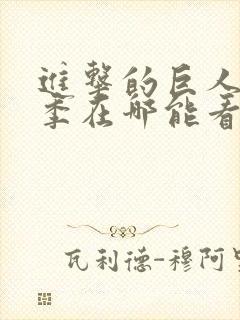 進擊的巨人
季在哪能看
瓦利德-穆阿